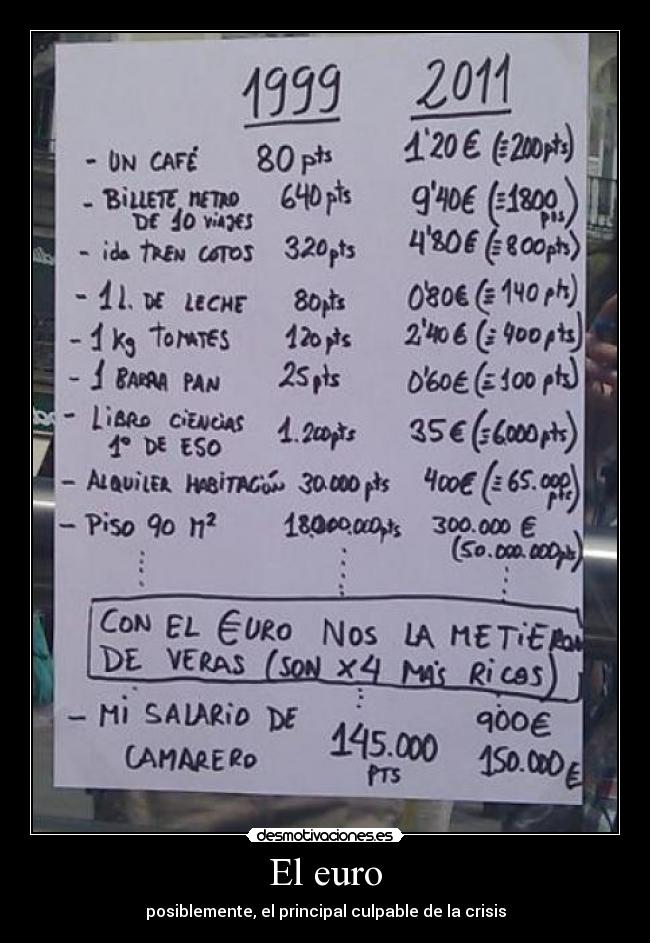 1999 2011
- UN CAFÉ 80 pts 1'20 € (≡200pts)
- BILLETE METRO 640 pts 9'40€ (≡1800
DE 10 VIAJES pts)
- ida TREN COTOS 320 pts 4'80€ (≡800pts)
- 1 l. DE LECHE 80pts 0'80€ (≡140 pts)
- 1 Kg TOMATES 120 pts 2'40€ (≡400pts)
- 1 BARRA PAN 25 pts 0'60€ (≡100 pts)
- LIBRO CIENCIAS 1.200pts 35€ (≡6000pts)
1º DE ESO
- ALQUILER HABITACIÓN 30.000 pts 400€ (≡65.000
pts)
- PISO 90 M² 18.000.000pts 300.000 €
(50.000.000pts)
CON EL €URO NOS LA METIERON
DE VERAS (SON X4 MÁS RICOS)
- MI SALARIO DE 145.000 900€
CAMARERO PTS 150.000€
desmotivaciones.es
El euro
posiblemente, el principal culpable de la crisis